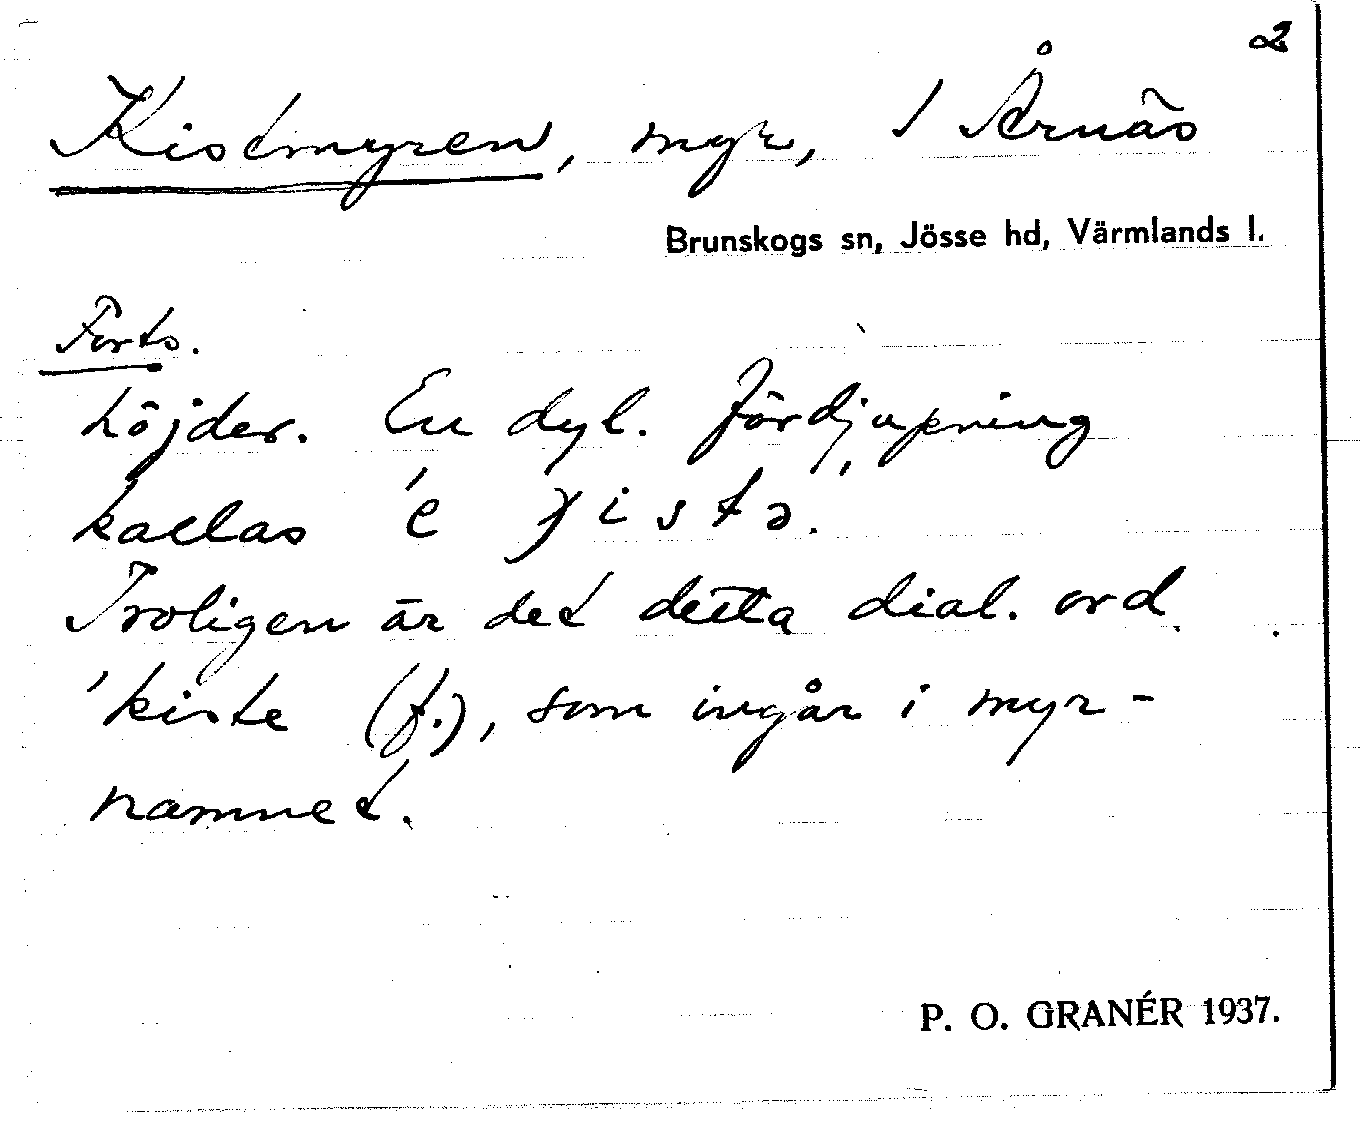 2
Kistmyren, myr, / Årnäs
Brunskogs sn, Jösse hd, Värmlands l.
Forts.
höjder. En dyl. fördjupning
kallas 'e ɟistə'.
Troligen är det detta dial. ord
'kiste (f.), som ingår i myr-
namnet.
P. O. GRANÉR 1937.